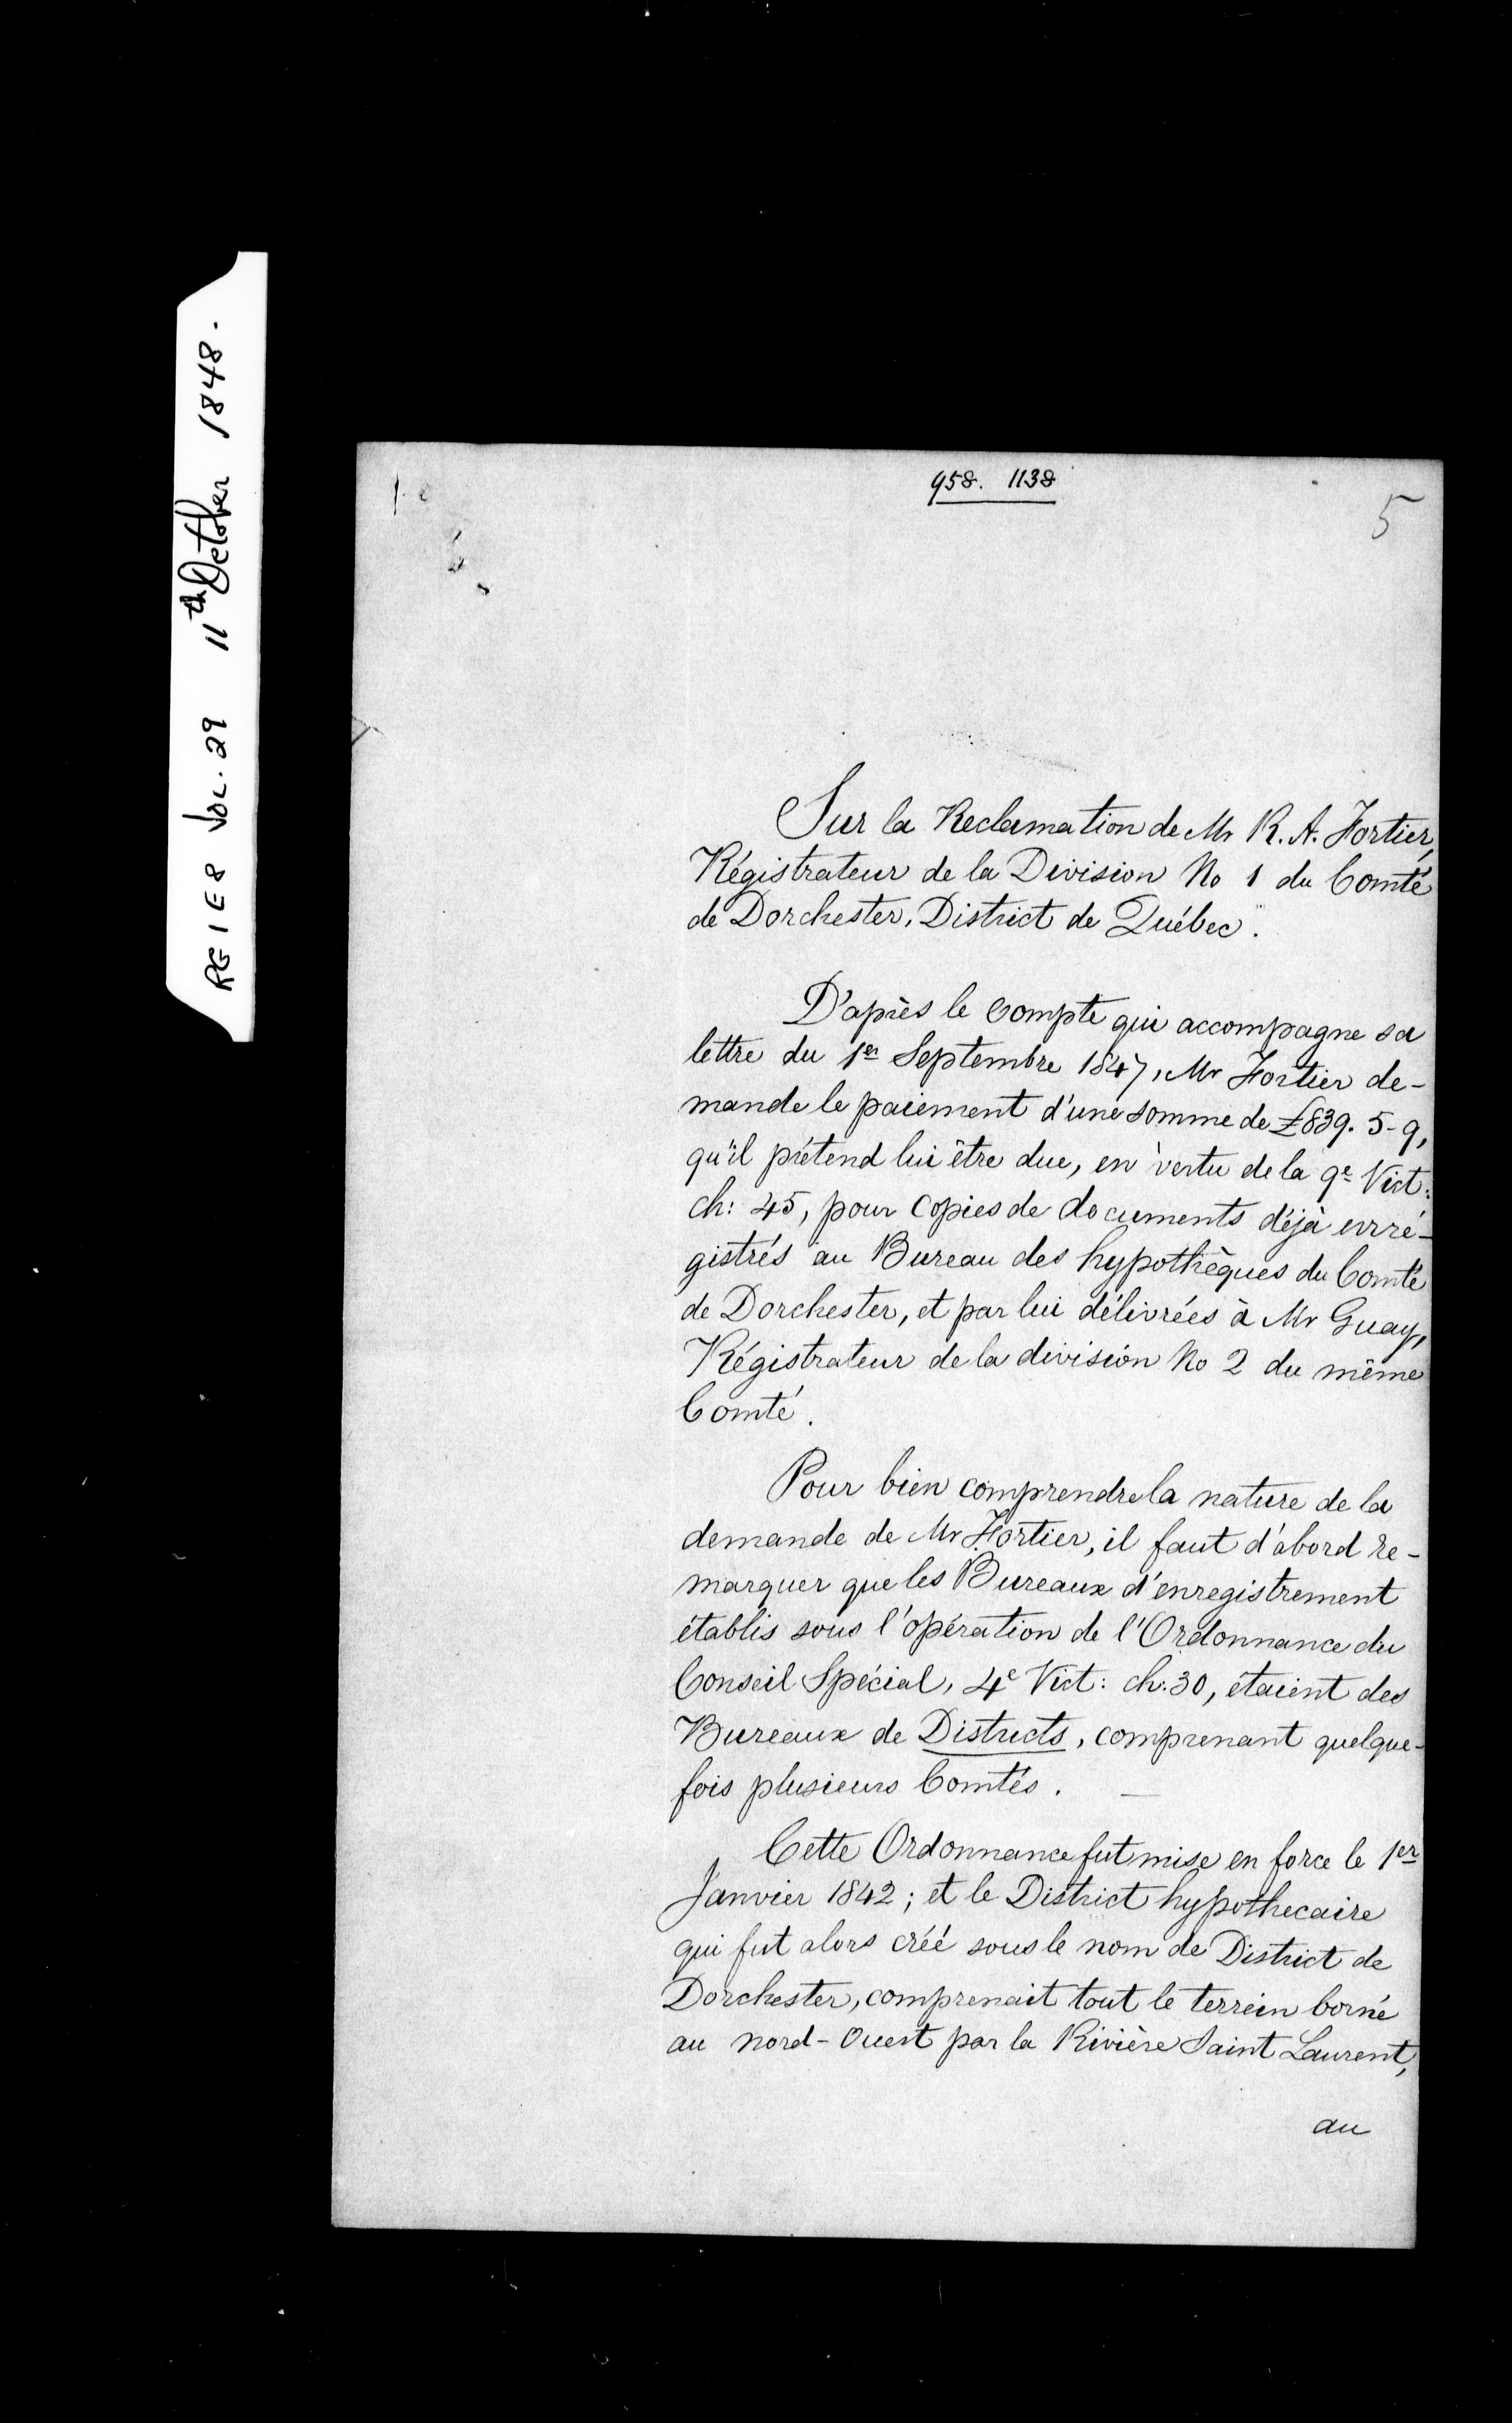 RG 1 E 8 Vol. 29 11th October 1848.
958. 1138
5
Sur la Reclamation de Mr R. A. Fortier,
Régistrateur de la Division No 1 du Comté
de Dorchester, District de Québec.
D'après le Compte qui accompagne sa
lettre du 1er Septembre 1847, Mr Fortier de-
mande le paiement d'une somme de £839. 5-9,
qu'il prétend lui être due, en vertu de la 9e Vict:
ch: 45, pour Copies de documents déjà enré-
gistrés au Bureau des hypothèques du Comté
de Dorchester, et par lui délivrées à Mr Guay,
Régistrateur de la division No 2 du même
Comté.
Pour bien comprendre la nature de la
demande de Mr Fortier, il faut d'abord re-
marquer que les Bureaux d'enregistrement
établis sous l'opération de l'Ordonnance du
Conseil Spécial, 4e Vict: ch: 30, étaient des
Bureaux de Districts, comprenant quelque-
fois plusieurs Comtés. —
Cette Ordonnance fut mise en force le 1er
Janvier 1842; et le District hypothecaire
qui fut alors créé sous le nom de District de
Dorchester, comprenait tout le terrein borné
au nord-Ouest par la Rivière Saint Laurent,
au